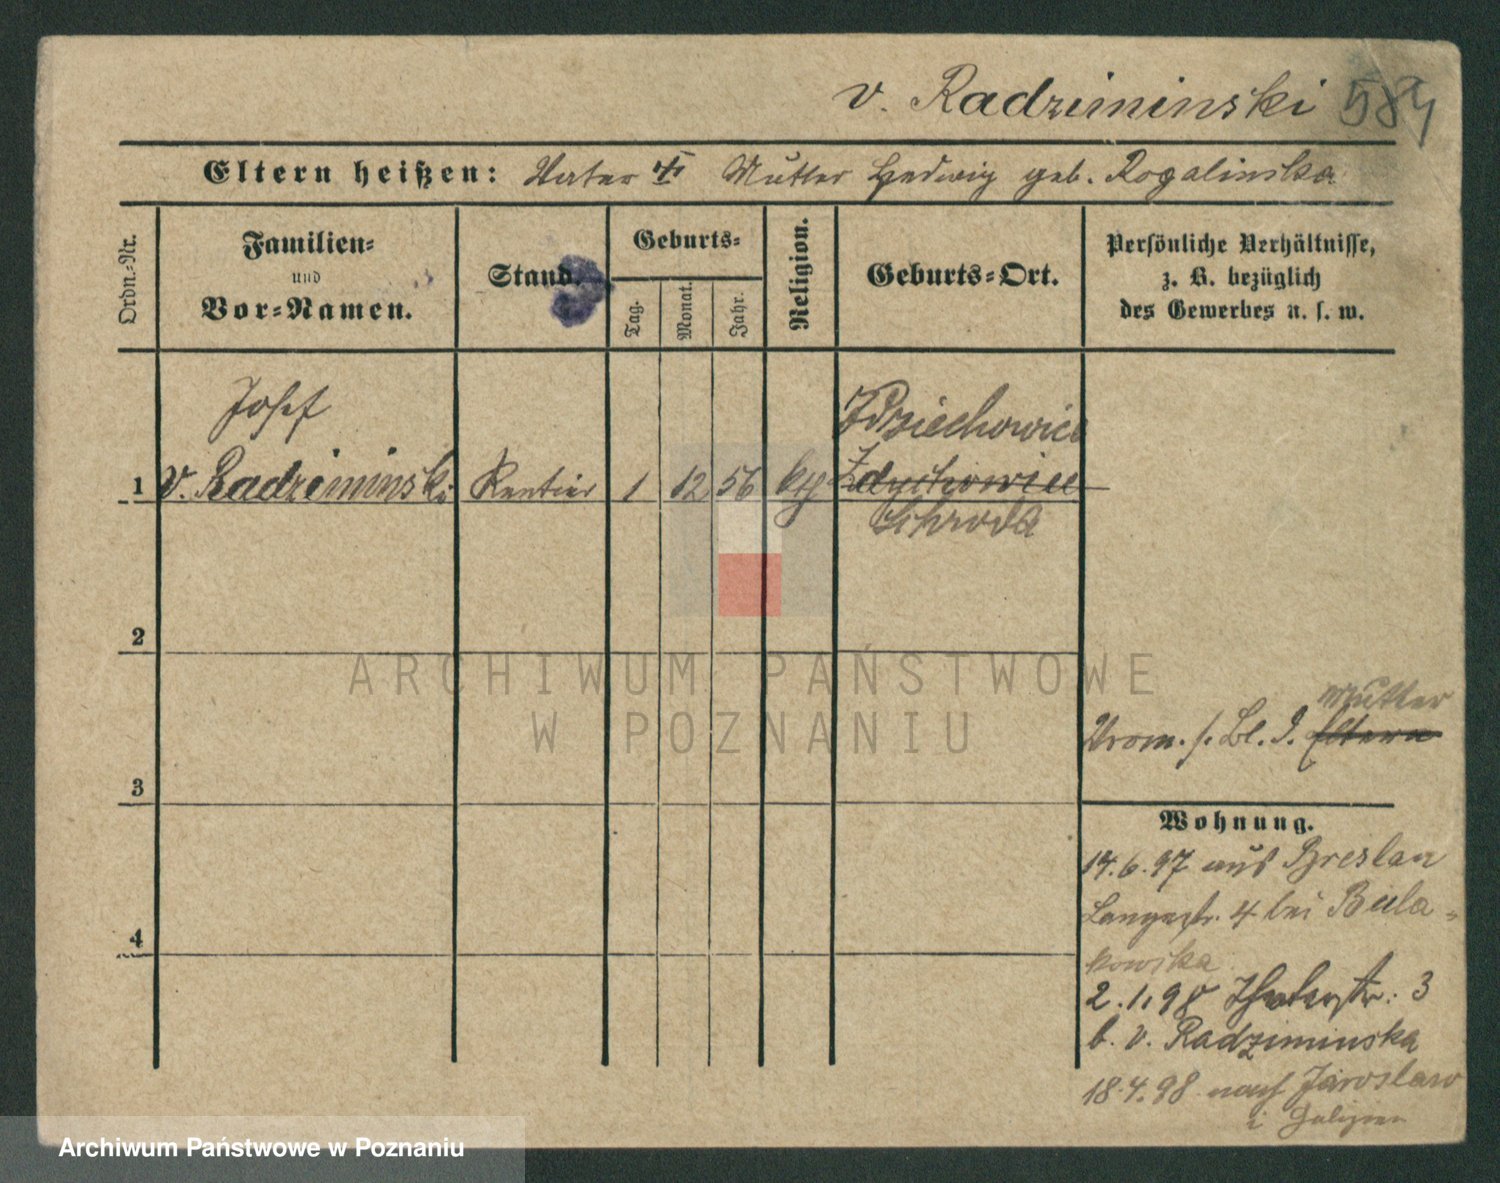 v. Radziminski 584
Eltern heißen: Vater † Mutter Hedwig geb. Rogalinska
Ordn.-Nr.
Familien-
und
Vor-Namen.
Stand.
Geburts-
Tag.
Monat.
Jahr.
Religion.
Geburts-Ort.
Persönliche Verhältnisse,
z. B. bezüglich
des Gewerbes u. s. w.
Josef
1 v. Radziminski Rentier 1 12 56 kth
Zdziechowice
Zdychowice
Schroda
2
3
4
Mutter
Vrom. s. Bl. d. Eltern
Wohnung.
14.6.97 aus Breslau
Langestr. 4 bei Biela-
kowska
2.1.98 Theaterstr. 3
b. v. Radziminska
18.4.98 nach Jaroslaw
i Galizien
ARCHIWUM PAŃSTWOWE
W POZNANIU
Archiwum Państwowe w Poznaniu